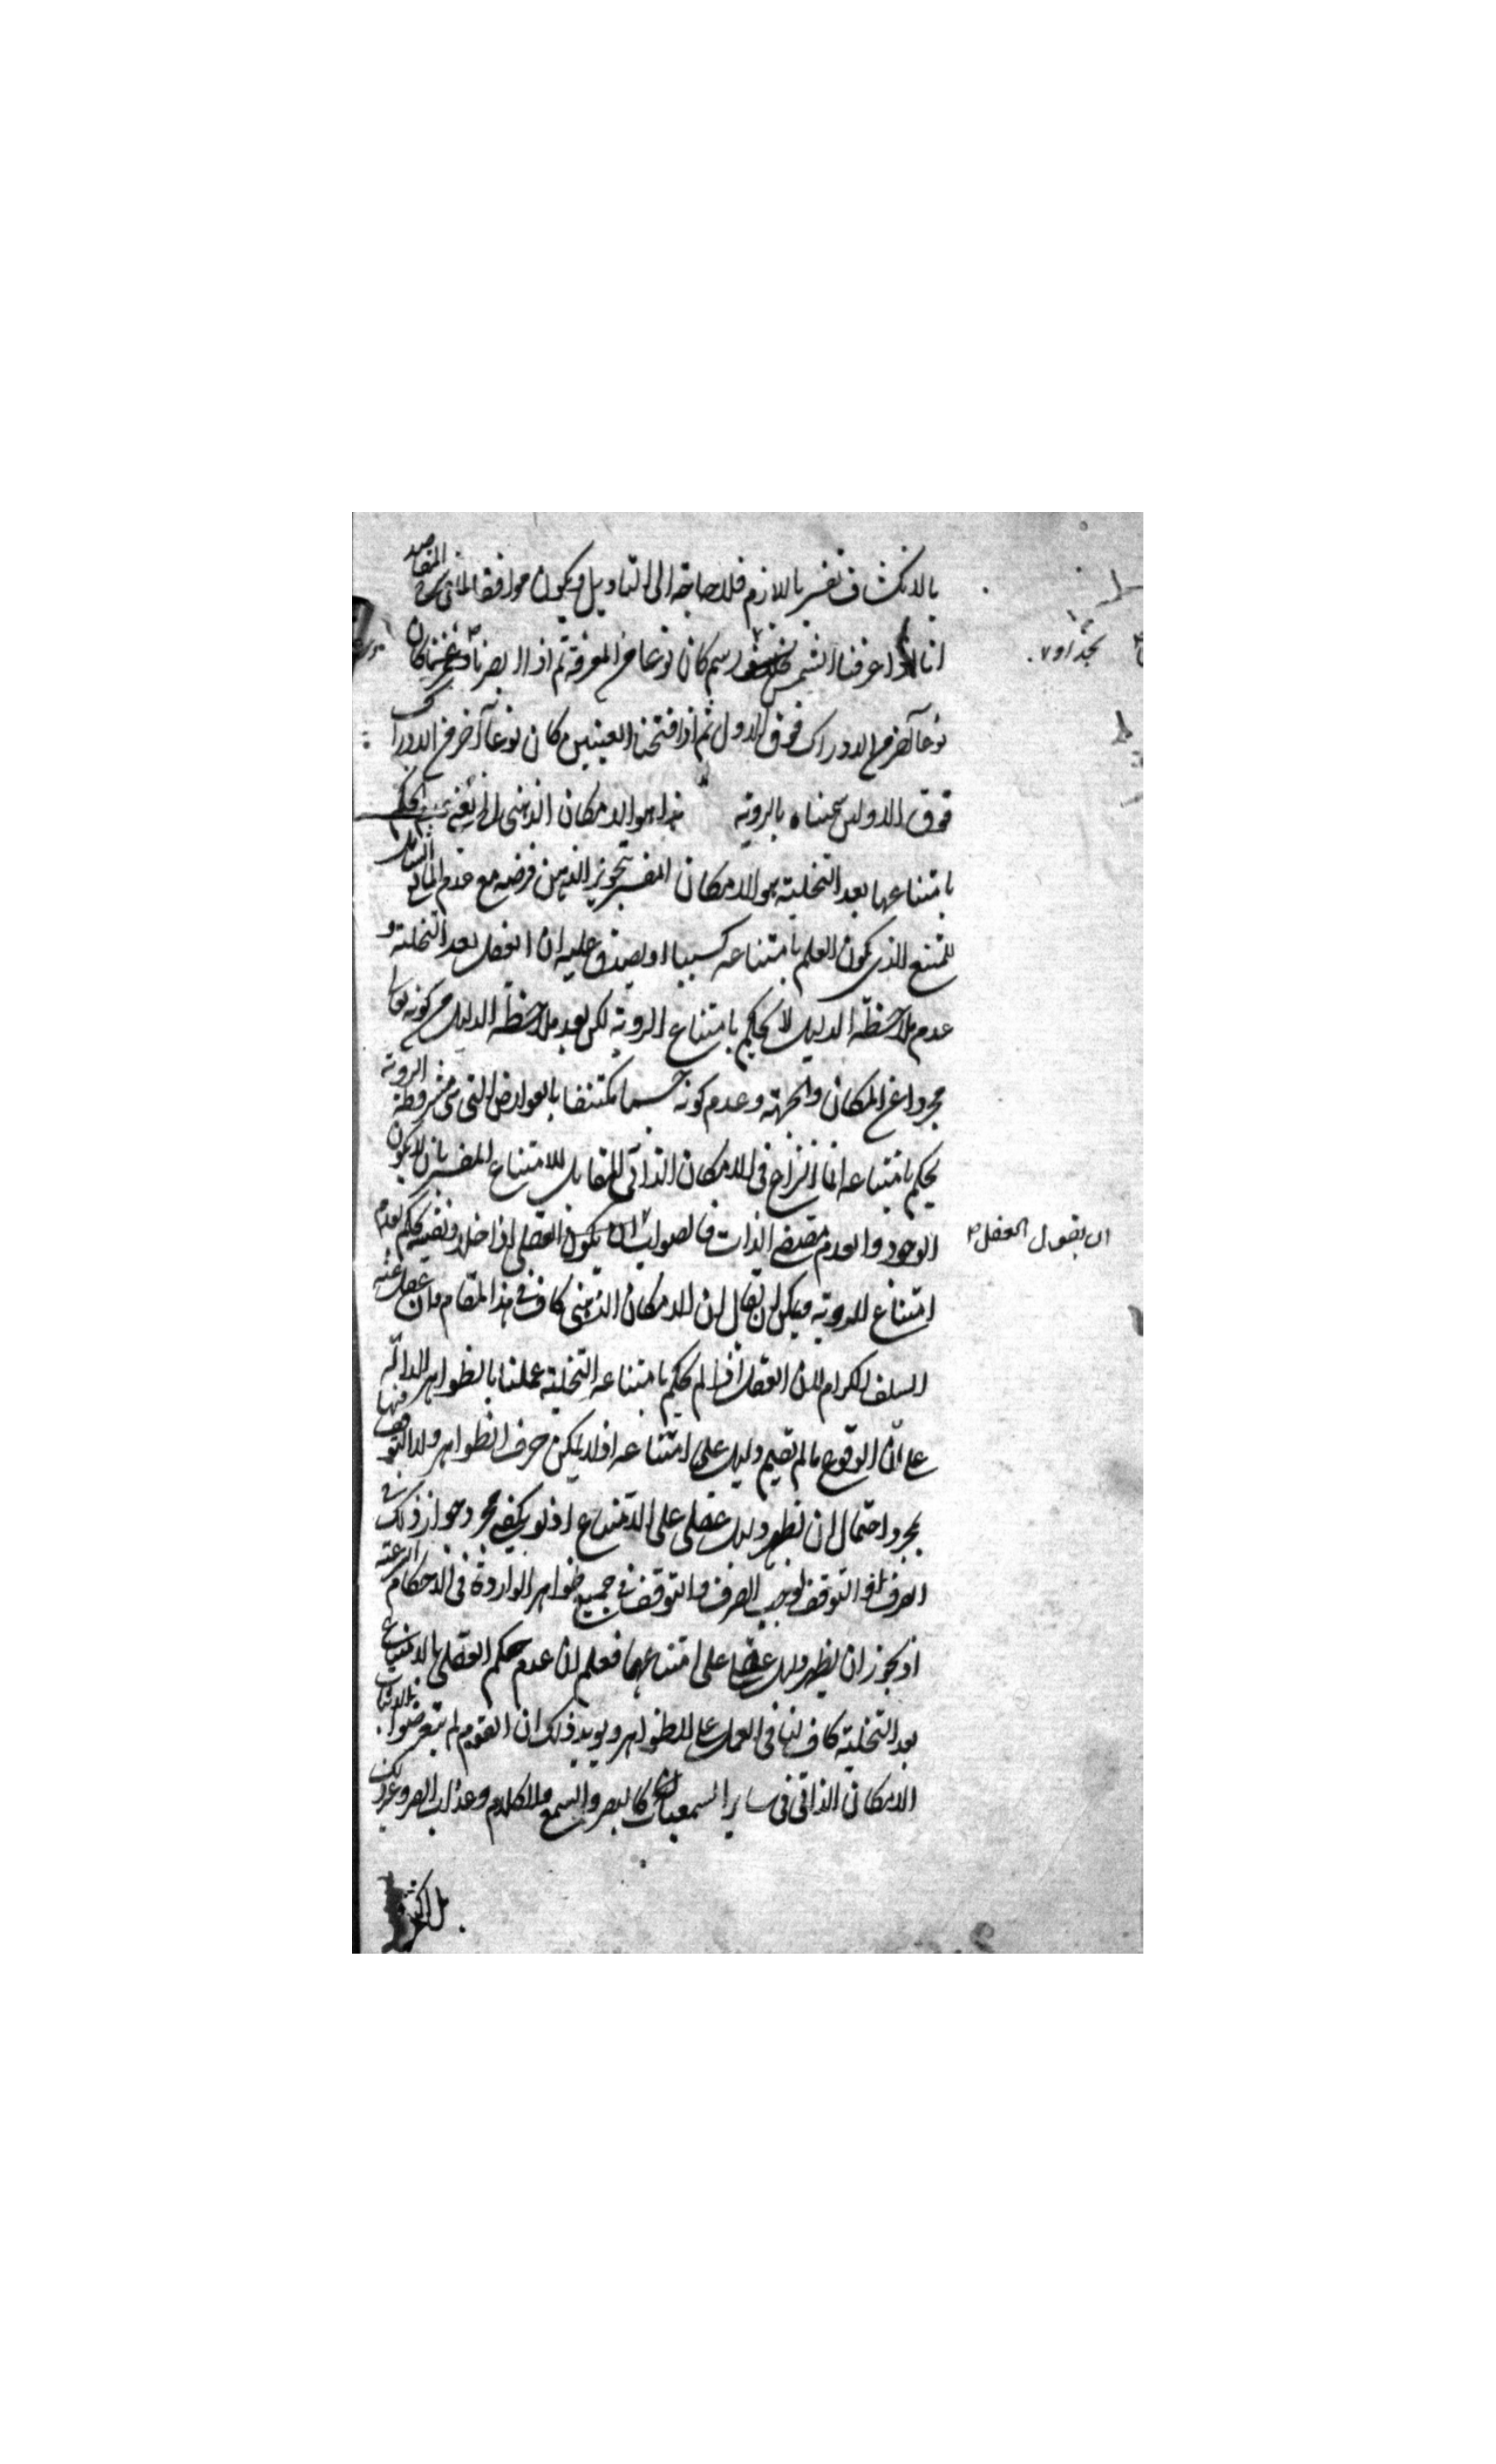 بالانكشاف تفسير باللازم فلا حاجة الى التاويل ويكون موافقا لما في شرح المقاصد
انا اذا عرفنا الشمس بحد او رسم كان نوعا من المعرفة ثم اذا ابصرنا وغمضنا كان
نوعا آخر من الادراك فوق الاول ثم اذا فتحنا العينين كان نوعا آخر من الادراك
فوق الاولين سميناه بالروية هذا هو الامكان الذهنى
بامتناعها بعد التخلية هو الامكان المفسر بتجويز الذهن فرضه مع عدم المانع الشامل
للممتنع الذى يكون العلم بامتناعه كسبيا اذ يصدق عليه ان العقل بعد التخلية و
عدم ملاحظة الدليل لا يحكم بامتناع الروية لكن بعد ملاحظة الدليل من كونه تعالى
مجردا عن المكان والجهة وعدم كونه جسما مكتنفا بالعوارض التى هى مشروطة الروية
يحكم بامتناعه انما النزاع فى الامكان الذاتى المقابل للامتناع المفسر بان لا يكون
الوجود والعدم مقتضى الذات فالصواب ان يكون العقل اذا خلا ونفسه يحكم بعدم
ان يقول العقل
امتناع الروية ويمكن ان يقال ان الامكان الذهنى كاف فى هذا المقام وان غفل عنه
السلف الكرام لان العقل اذا لم يحكم بامتناعه التخلية عملنا بالظواهر الدالة
على ان الوقوع ما لم تقيم دليل على امتناعه اذ لا يمكن صرف الظواهر ولا التوقف فيها
بمجرد احتمال ان نظهر دليل عقلى على الامتناع اذ لو يكفى مجرد جواز ذلك فى
الصرف او التوقف لوجب الصرف والتوقف فى جميع ظواهر الواردة فى الاحكام الشرعية
اذ يجوز ان يظهر دليل عقلى على امتناعها فعلم ان عدم حكم العقل بالامتناع
بعد التخلية كاف لنا فى العمل على الظواهر ويويد ذلك ان القوم لم يتعرضوا لاثبات
الامكان الذاتى فى ساير السمعيات كالبصر والسمع والكلام وعذاب القبر وغير ذلك
بل اكتفوا